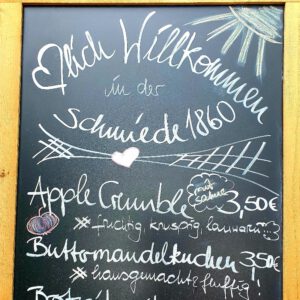 ♡lich Willkommen
in der
Schmiede 1860
Apple Crumble mit Sahne 3,50€
fruchtig, knusprig, lauwarm
Buttermandelkuchen 3,50€
hausgemachte fluffig!